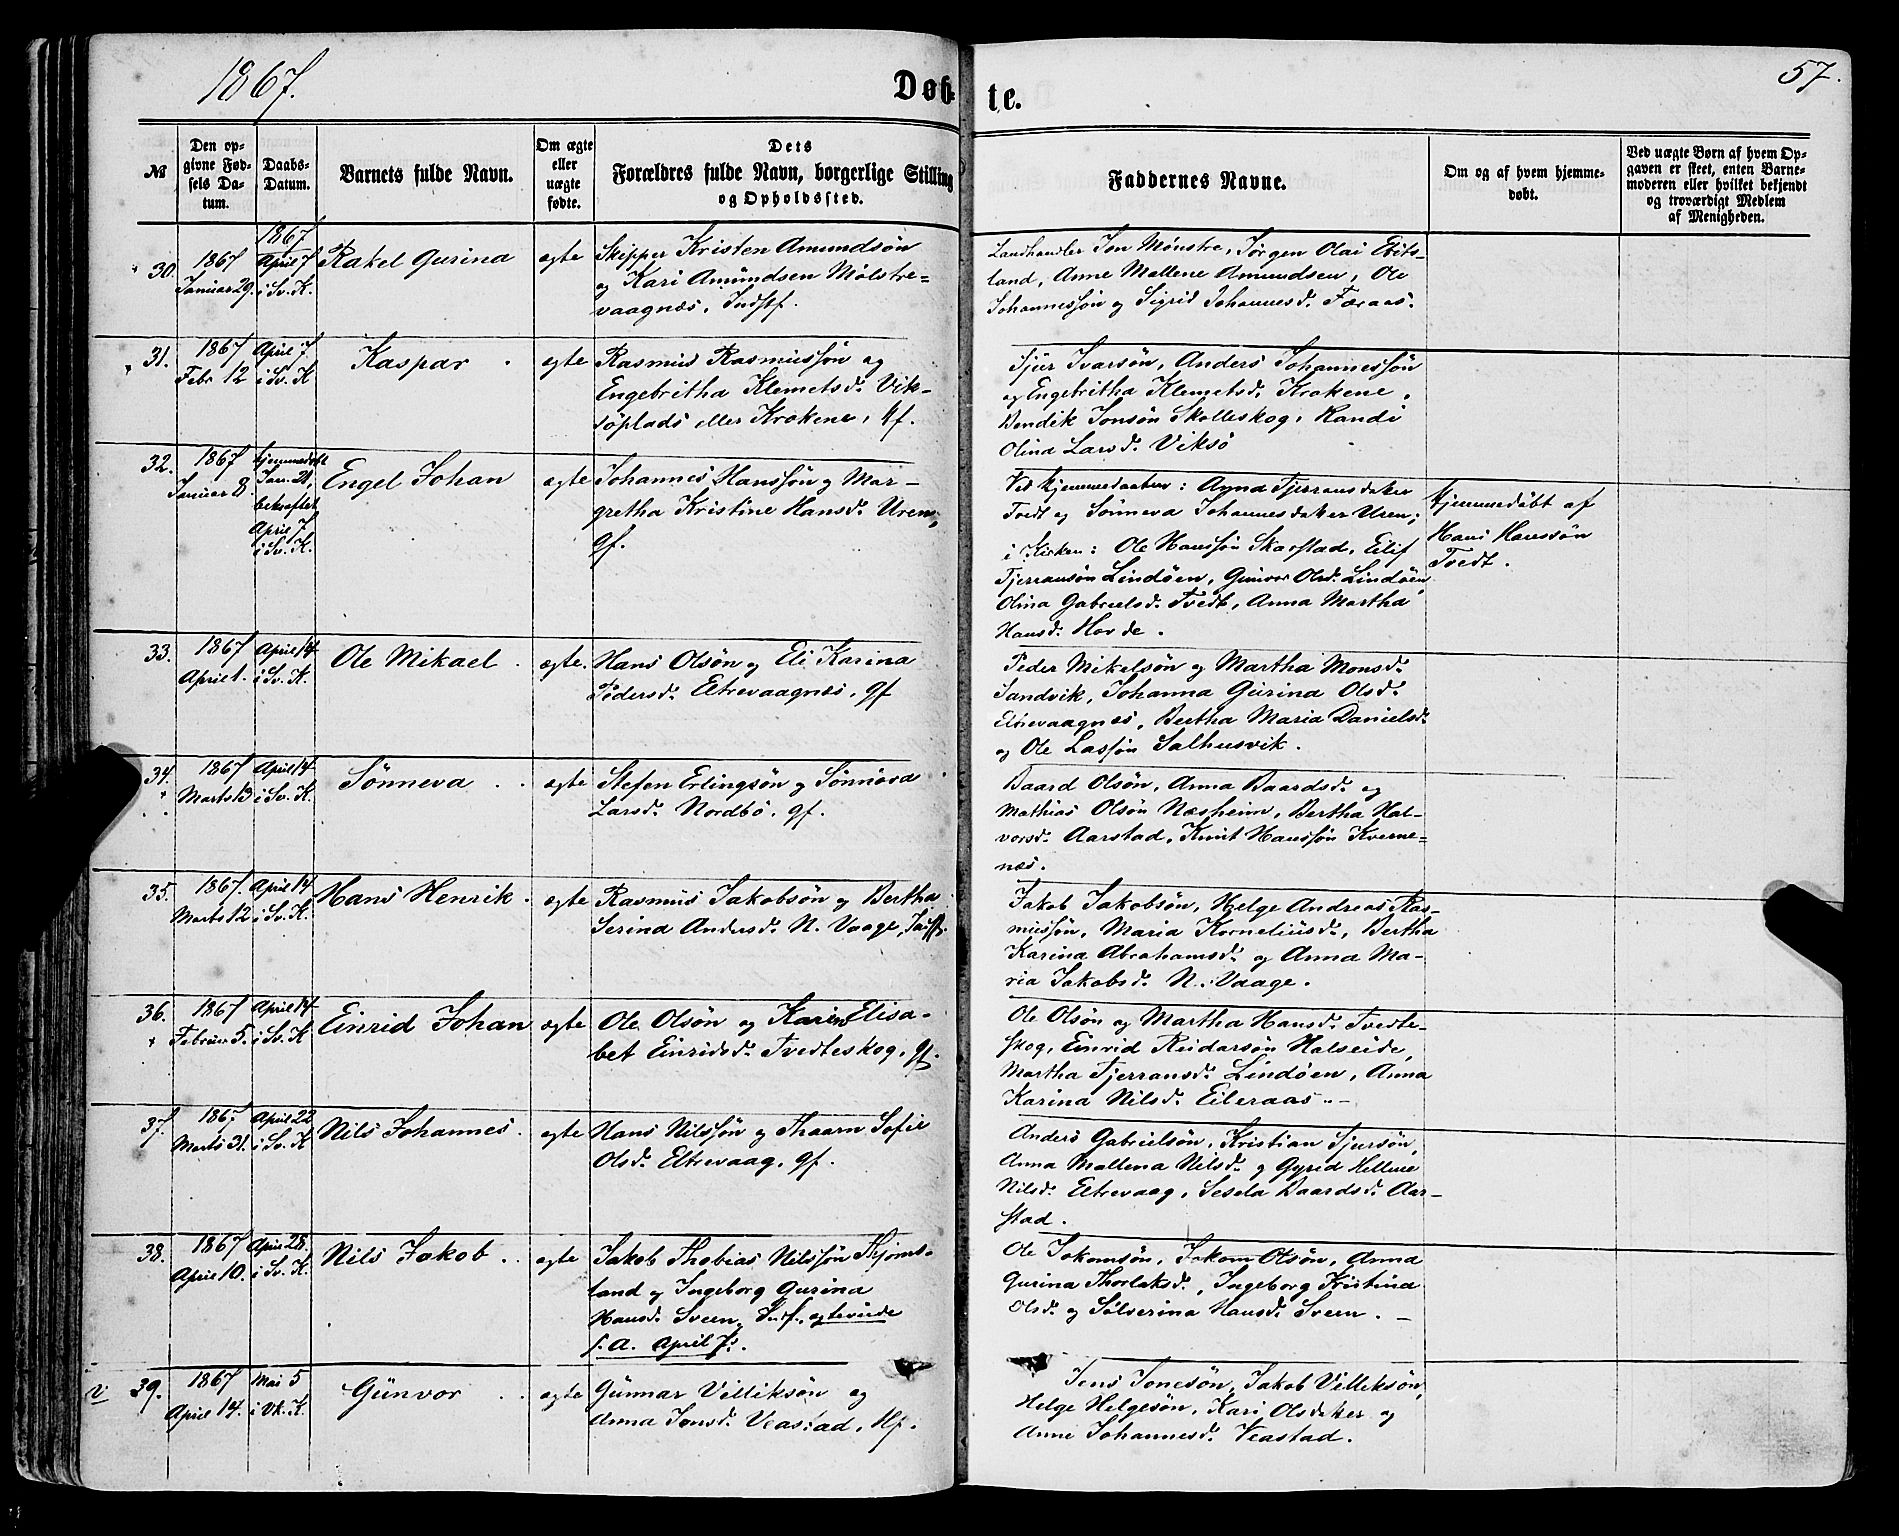 1867.
Døbte.
57.
№
Den opgivne Fødsels Datum.
Daabs-Datum.
Barnets fulde Navn.
Om ægte eller uægte fødte.
Dets Forældres fulde Navn, borgerlige Stilling og Opholdssted.
Faddernes Navne.
Om og af hvem hjemmedøbt.
Ved uægte Børn af hvem Opgaven er skeet, enten Barnemoderen eller hvilket bekjendt og troværdigt Medlem af Menigheden.
30.
1867
Januar 29.
1867
April 7
i Sv. K.
Rakel Gurina
ægte
Skipper Kristen Amundsøn
og Kari Amundsen Mølstre-
vaagnæs, Indstf.
Landhandler Jon Mønstre, Jørgen Olai Eids-
land, Anne Mallene Amundsen, Ole
Johannessøn og Sigrid Johannesd. Færaas.
31.
1867
Febr 12
April 7.
i Sv. K
Kaspar
ægte
Rasmus Rasmussøn og
Engebritha Klemetsd. Vik-
søplads eller Krokene, hf.
Sjur Ivarsøn, Anders Johannessøn
og Engebritha Klemetsd. Krokene,
Bendik Jonsøn Skolleskog, Randi
Olina Larsd. Viksø
32.
1867
Januar 8
hjemmedøbt
Jan. 21,
bekræftet
April 7
i Sv. K.
Engel Johan
ægte
Johannes Hanssøn og Mar-
gretha Kristine Hansd. Uren,
gf.
Ved hjemmedaaben: Anna Tjerransdatter
Tvedt og Sønneva Johannesdatter Uren;
i Kirken: Ole Hanssøn Skarstad, Eilif
Tjerransøn Lindøen, Gunvor Olsd. Lindøen,
Olina Gabrielsd. Tvedt, Anna Martha
Hansd. Hovde.
Hjemmedøbt af
Hans Hanssøn
Tvedt.
33.
1867
April 1.
April 14
i Sv. K.
Ole Mikael
ægte.
Hans Olsøn og Eli Karina
Pedersd. Eltrevaagnæs, gf
Peder Mikelsøn og Martha Monsd.
Sandvik, Johanna Gurina Olsd.
Eltrevaagnæs, Bertha Maria Danielsd.
og Ole Lassøn Salhusvik.
34.
1867
Marts 13
April 14
i Sv. K.
Sønneva
ægte
Stefen Erlingsøn og Sønneva
Larsd. Nordbø, gf.
Baard Olsøn, Anna Baardsd. og
Mathias Olsøn Næsheim, Bertha Hal-
vorsd. Aarstad, Knut Hanssøn Kverne-
næs.
35.
1867.
Marts 12
April 14
i Sv. K.
Hans Henrik
ægte
Rasmus Jakobsøn og Bertha
Serina Andersd. N. Vaage,
Jakob Jakobsøn, Helge Andreas Ras-
mussøn, Maria Korneliusd., Bertha
Karina Abrahamsd. og Anna Ma-
ria Jakobsd. N. Vaage.
36.
1867
Februar 5.
April 14
i Sv. K
Einrid Johan
ægte
Ole Olsøn og Karen Elisa-
bet Einridsd. Tvedteskog, gf.
Ole Olsøn og Martha Hansd. Tvedte-
skog, Einrid Reidarsøn Halseide,
Martha Tjerransd. Lindøen, Anna
Karina Nilsd. Eileraas.
37.
1867
Marts 31.
April 22
i Sv. K
Nils Johannes.
ægte
Hans Nilssøn og Thaarn Sofie
Olsd. Eltrevaag, gf.
Anders Gabrielsøn, Kristian Sjursøn,
Anna Mallena Nilsd. og Gyrid Hellene
Nilsd. Eltrevaag, Sesela Baardsd. Aar-
stad.
38.
1867
April 10.
April 28.
i Sv. K.
Nils Jakob
ægte
Jakob Thobias Nilssøn Thjøms-
land og Ingeborg Gurina
Hansd. Sveen, Indf., egteviede
s. A. April 7.
Ole Jokomsøn, Jokom Olsøn, Anna
Gurina Thorlaksd., Ingeborg Kristina
Olsd. og Sølverina Hansd. Sveen.
v
39.
1867
April 14.
Mai 5
i Vk. K.
Gunvor
ægte
Gunnar Villiksøn og
Anna Jonsd. Veastad, Hf.
Jens Jonesøn, Jakob Villeksøn,
Helge Helgesøn, Kari Olsdatter og
Anne Johannesd. Veastad.